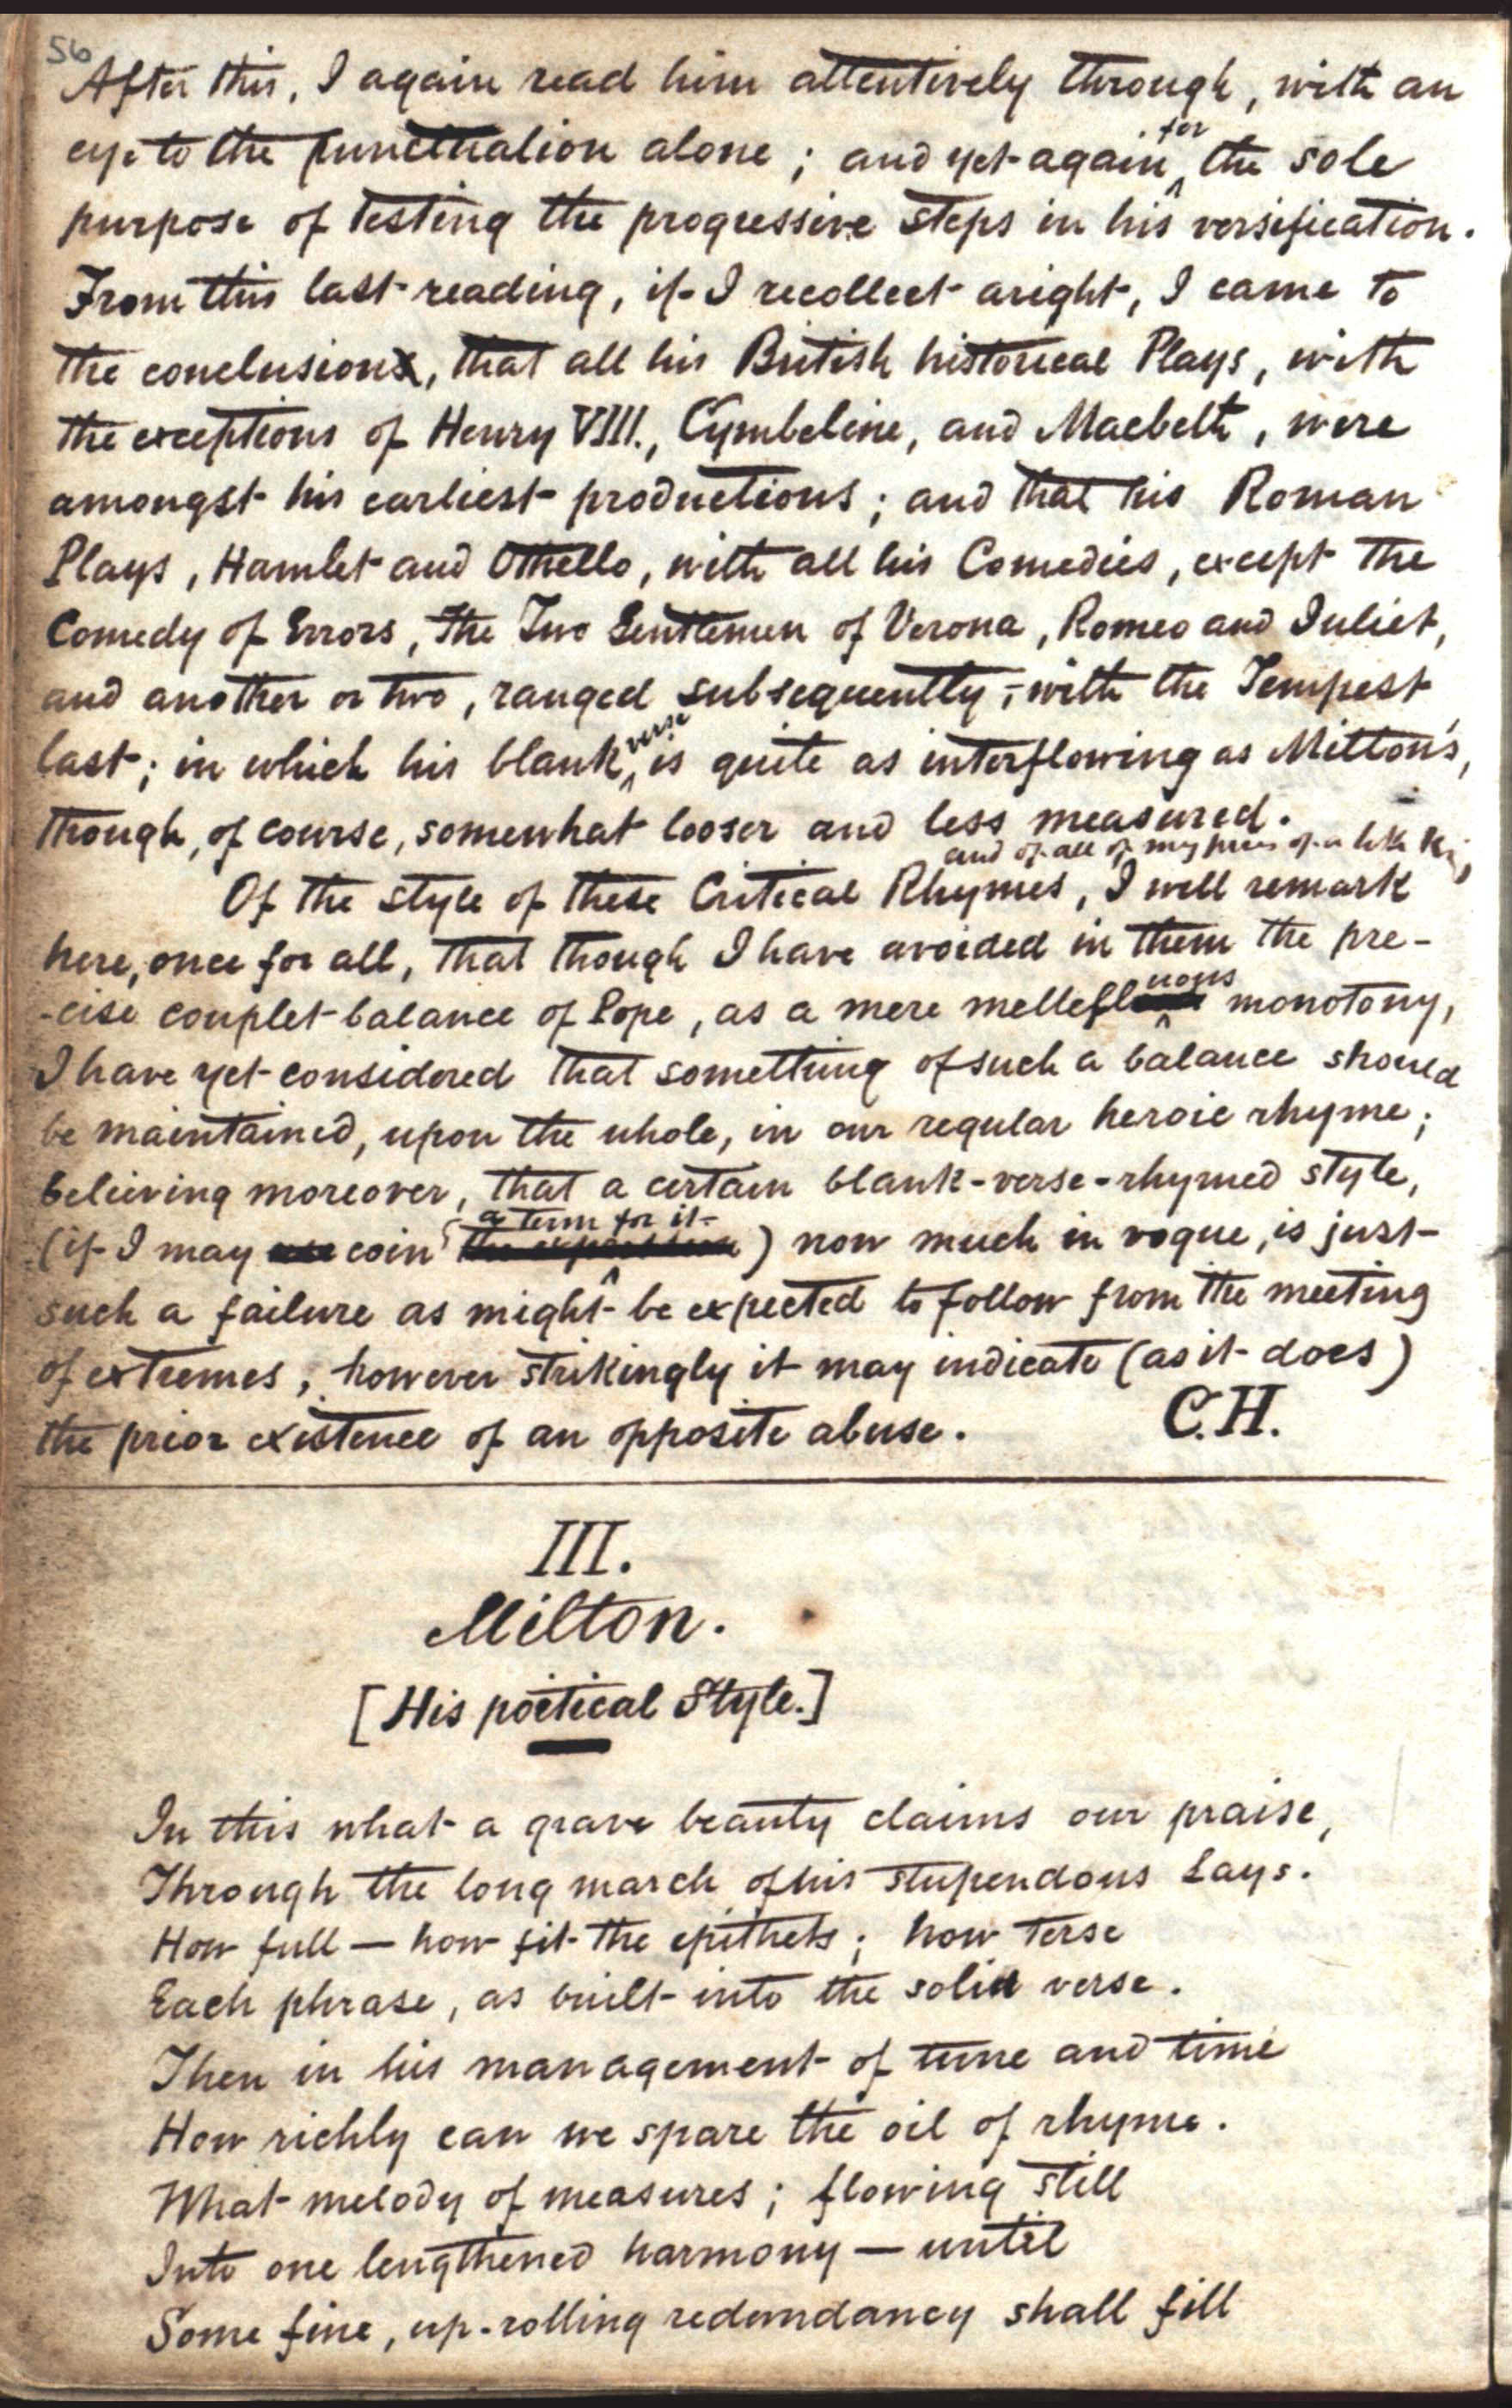 56
After this, I again read him attentively through, with an
eye to the punctuation alone; and yet again for the sole
purpose of testing the progressive steps in his versification.
From this last reading, if I recollect aright, I came to
the conclusion, that all his British historical Plays, with
the exceptions of Henry VIII., Cymbeline, and Macbeth, were
amongst his earliest productions; and that his Roman
Plays, Hamlet and Othello, with all his Comedies, except the
Comedy of Errors, The Two Gentlemen of Verona, Romeo and Juliet,
and another or two, ranged subsequently;–with the Tempest
last; in which his blank verse is quite as interflowing as Milton's,
though, of course, somewhat looser and less measured.
and of all of my pieces of a like
Of the style of these Critical Rhymes, I will remark
here, once for all, that though I have avoided in them the pre-
-cise couplet-balance of Pope, as a mere mellefluous monotony,
I have yet considered that something of such a balance should
be maintained, upon the whole, in our regular heroic rhyme;
believing moreover, that a certain blank-verse-rhymed style,
(if I may coin a term for it) now much in vogue, is just
such a failure as might be expected to follow from the meeting
of extremes, however strikingly it may indicate (as it does)
the prior existence of an opposite abuse. C.H.
III.
Milton.
[His poetical Style.]
In this what a grave beauty claims our praise,
Through the long march of his stupendous Lays.
How full — how fit the epithets; how terse
Each phrase, as built into the solid verse.
Then in his management of tune and time
How richly can we spare the oil of rhyme.
What melody of measures; flowing still
Into one lengthened harmony — until
Some fine, up-rolling redundancy shall fill